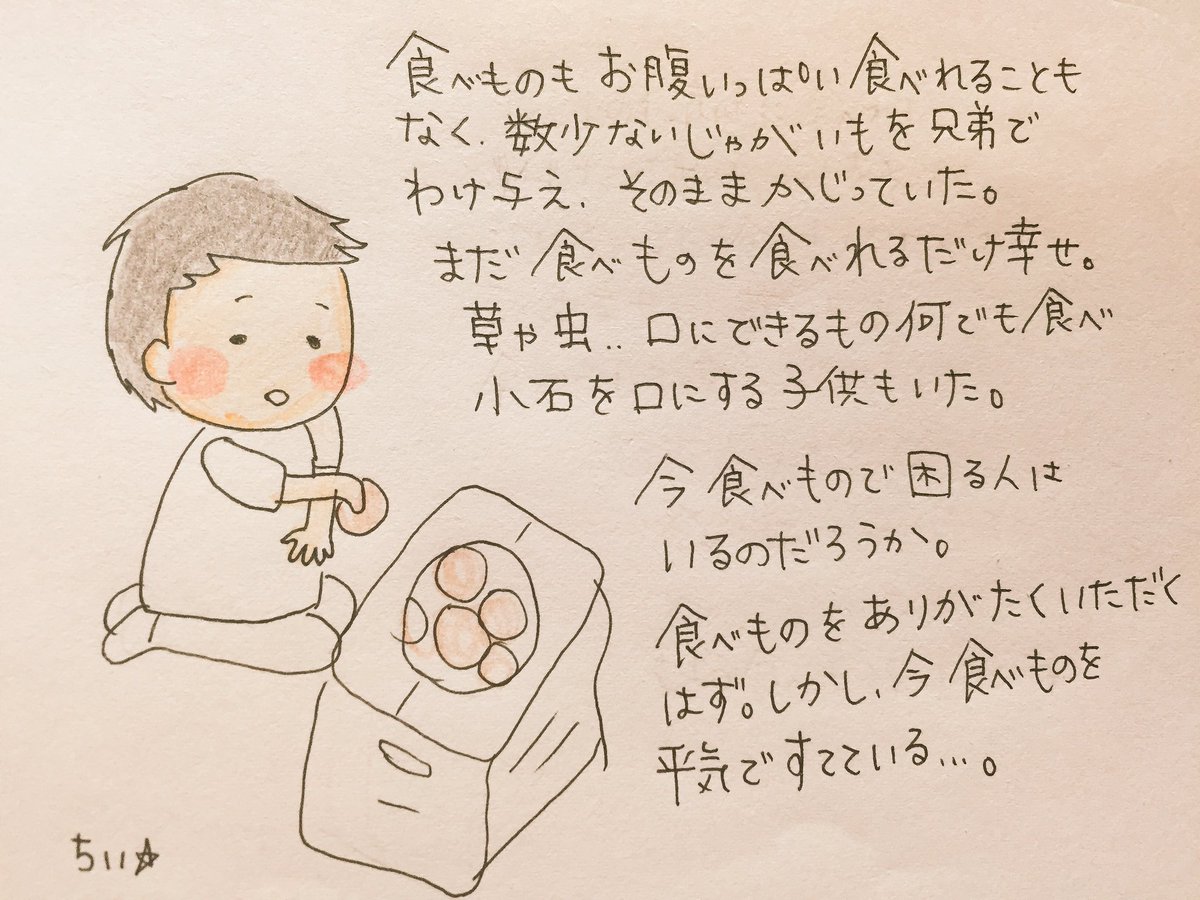 食べものも お腹いっぱい 食べれることも
なく、数少ないじゃがいもを兄弟で
わけ与え、そのままかじっていた。
まだ食べものを食べれるだけ幸せ。
草や虫.. 口にできるもの何でも食べ
小石を口にする子供もいた。
今食べもので困る人は
いるのだろうか。
食べものをありがたくいただく
はず。しかし、今食べものを
平気ですてている...。
ちい☆